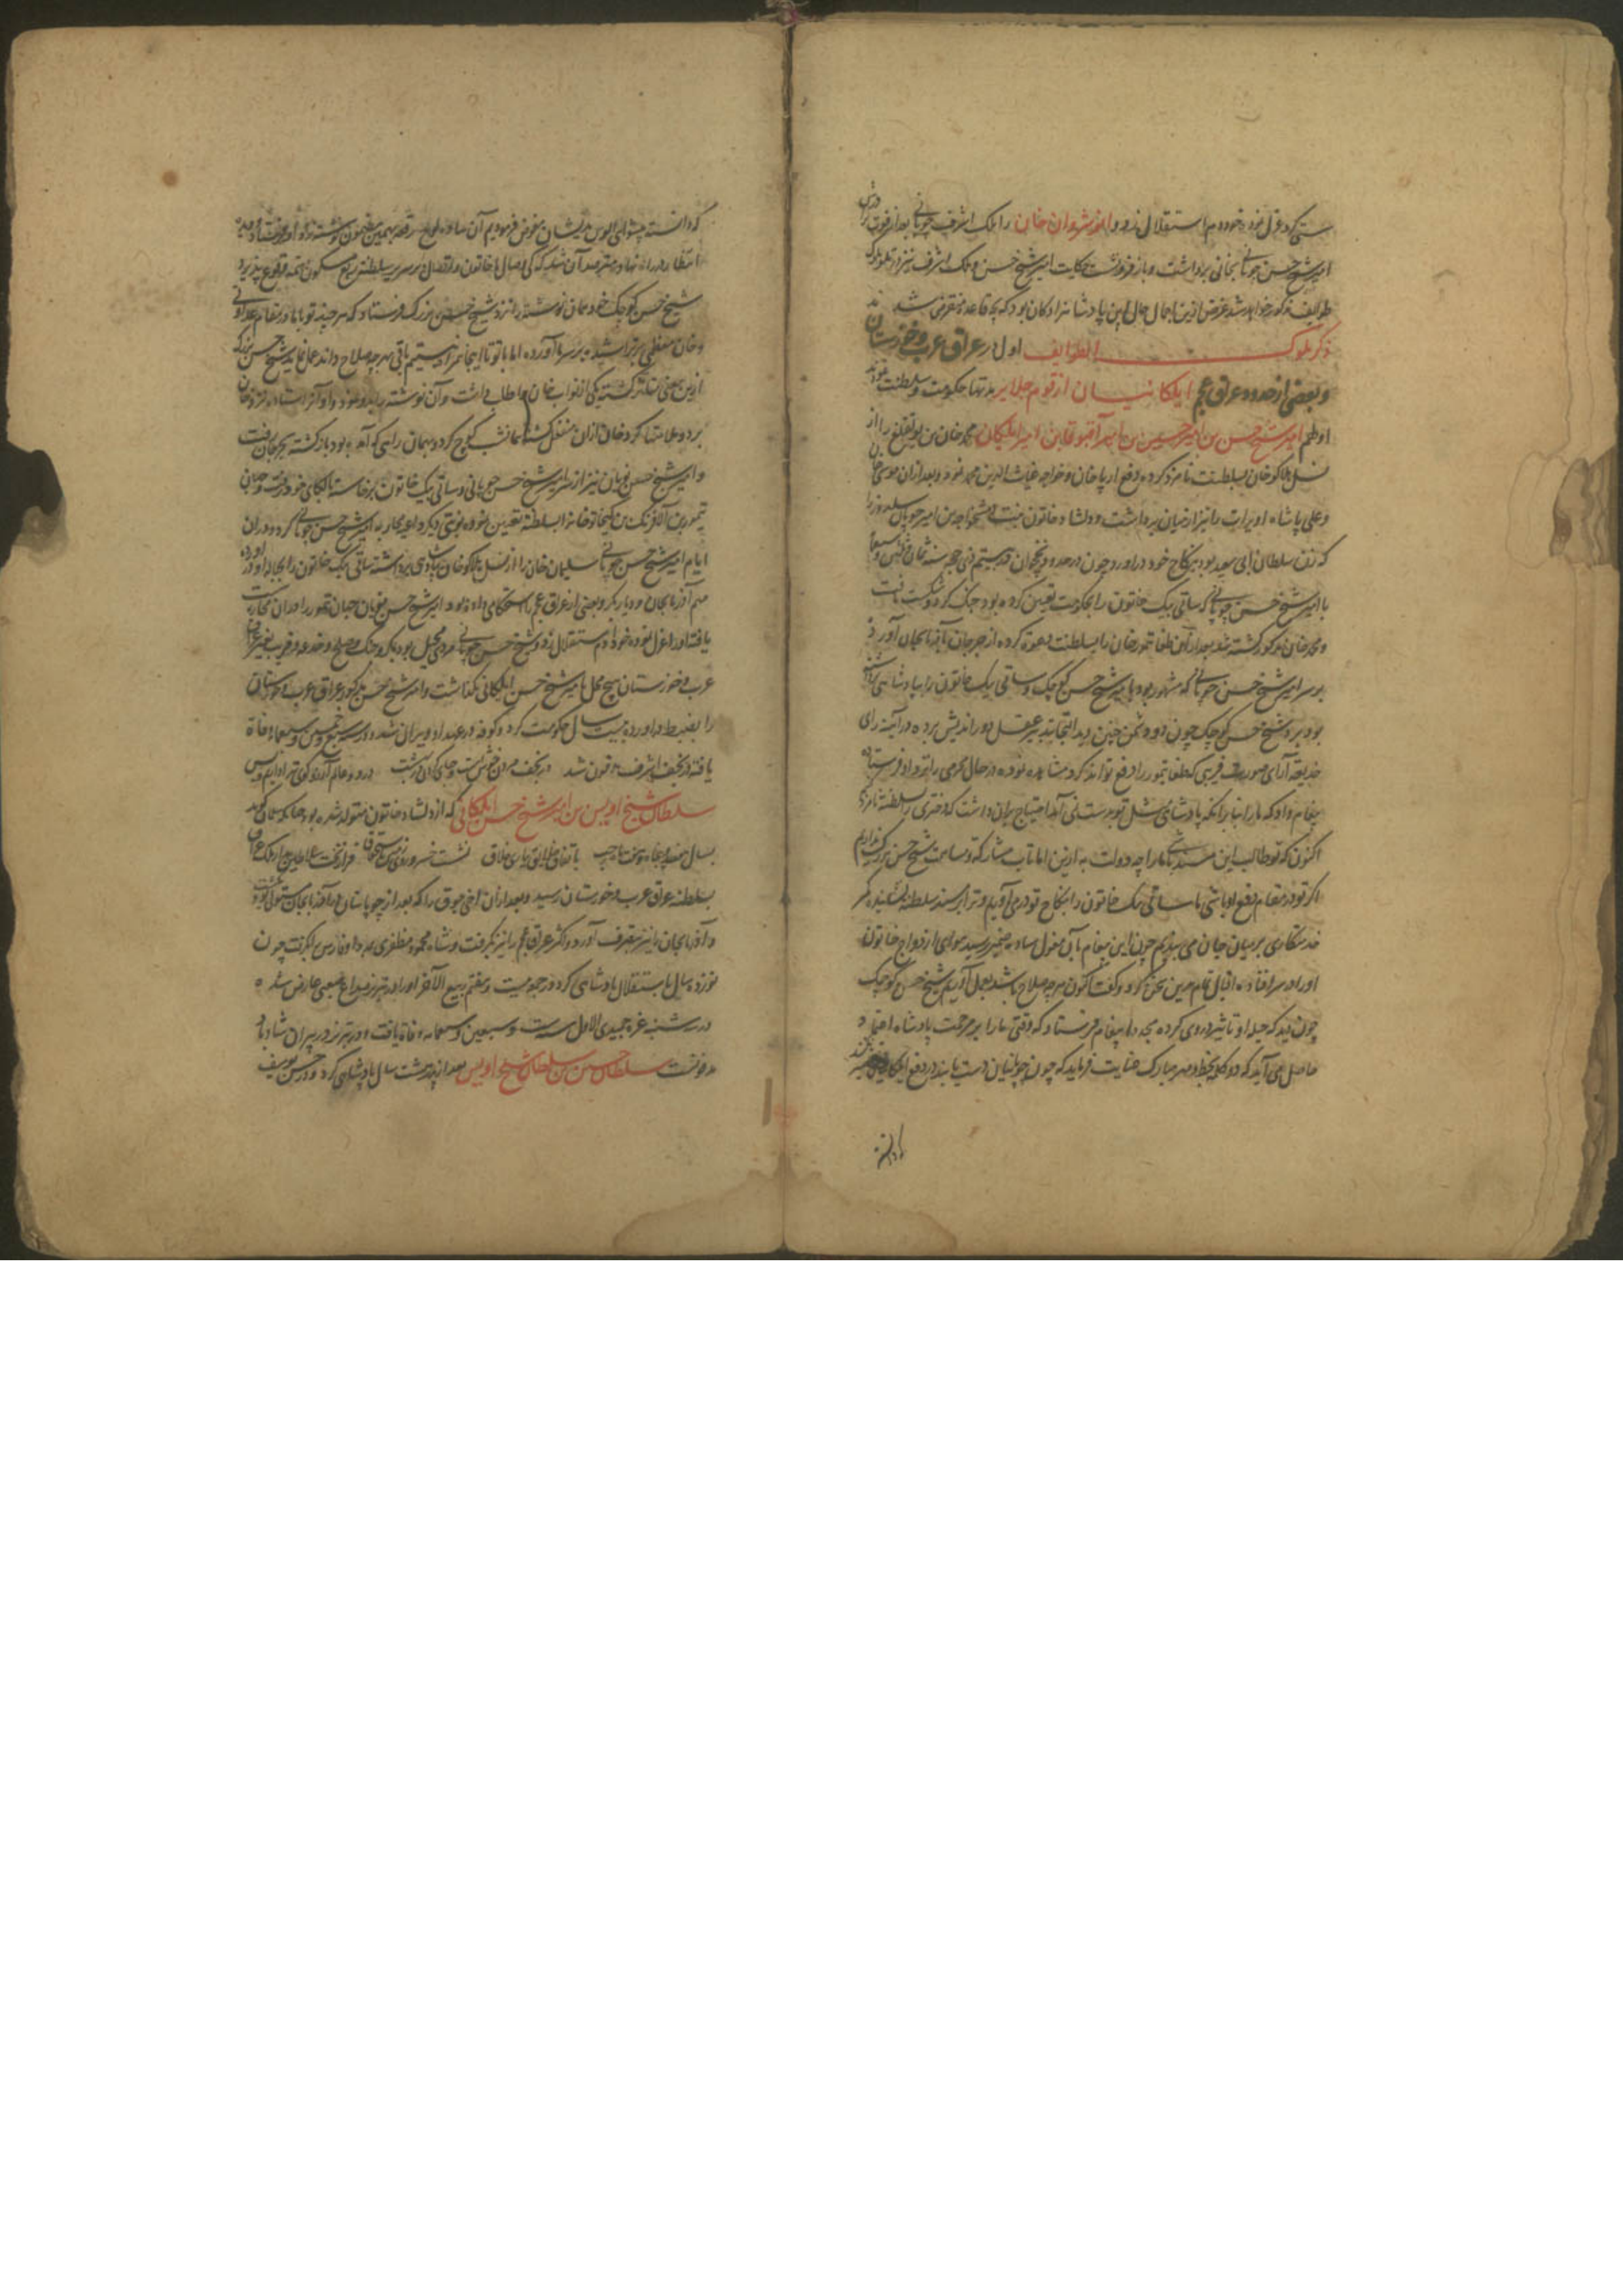 ستی کرد عزل نموده خود دم استقلال زد و انوشروان خان را ملک اشرف چوپانی بعد از فوت برادرش
امیر شیخ حسن چوپانی بخانی برداشت و باز فرو گذاشت حکایت امیر شیخ حسن و ملک اشرف نیز در ملوک
طوایف مذکور خواهد شد غرض ازین اجمال حال این پادشاهزادکان بود که بچه قاعده منقرض شدند
ذکر ملوک الطوایف اول در عراق عرب و خوزستان
و بعضی از حدود عراق عجم ایلکانیان از قوم جلایر مدتها حکومت و سلطنت نمودند
اولهم امیر شیخ حسن بن امیر حسین بن امیر آقبوقا بن امیر ایلکان محمد خان بن یولقتلغ را از
نسل هلاکو خان بسلطنت نامزد کرده بدفع ارپا خان و خواجه غیاث الدین محمد نمود و بعد از ان موسی خان
و علی پاشاه اویرات را نیز از میان برداشت و دلشاد خاتون بنت دمشق خواجه بن امیر چوپان سلدوز را
که زن سلطان ابی سعید بود بنکاح خود در اورد چون در حدود نخجوان در بیستم ذی حجه سنه ثمان و ثلثین و سبعمائه
با امیر شیخ حسن چوپانی که ساتی بیک خاتون را بحکومت تعیین کرده بود جنک کرد و شکست یافت
و محمد خان مذکور کشته شد بعد از آن طغا تیمور خان را بسلطنت دعوت کرده از جرجان بآذربایجان آورد
بر سر امیر شیخ حسن چوپانی که مشهور بود بامیر شیخ حسن کوچک و ساتی بیک خاتون را بپادشاهی برداشته
بود برد شیخ حسن کوچک چون دو دشمن چنین دید التجا بتدبیر عقل دور اندیش برده در آئینه رای
حدیقه آرای صورت فریبی که طغا تیمور را دفع تواند کرد مشاهده نموده در حال محرمی را نزد او فرستاده
پیغام داد که ما را بنا برانکه پادشاهی مثل تو بدست نمی آمد احتیاج بران داشت که دختری را بسلطنة نامزد
اکنون که تو طالب این مسند باشی ما را چه دولت به ازین اما تاب مشارکة و مساهمت شیخ حسن بزرک نداریم
اکر تو در مقام دفع او باشی ما ساتی بیک خاتون را بنکاح تو در می آوریم و ترا بر مسند سلطنة نشانیده کمر
خدمتکاری بر میان جان می بندیم چون این پیغام بآن مغول ساده ضمیر رسید هوای ازدواج خاتون
او را در سر افتاده اقبال تمام برین سخن کرد و کفت اکنون هر چه صلاح باشد بعمل آوریم شیخ حسن کوچک
چون دید که حیله او تاثیر دروی کرده مجددا پیغام فرستاد که وقتی ما را بر مرحمت پادشاه اعتماد
حاصل می آید که دو کلمه بخط و مهر مبارک عنایت فرماید که چون چوپانیان دست یابند در دفع ایلکانیان
که دانسته
که دانسته پیشوائی الوس بدیشان مفوض فرمودیم آن ساده لوح رقعه بهمین مضمون نوشته نزد او فرستاد و دیده
انتظار در راه نهاد و مترصد آن شد که کی وصال با خاتون و اتصال بر سریر سلطنة ربع مسکون سمت وقوع پذیرد
شیخ حسن کوچک خود همان نوشته را نزد شیخ حسن بزرک فرستاد که هر چند تو با ما در مقام عداوتی
و خان معظمی بر تراشیده بر سر ما آورده اما با تو تا اینجا همراه نیستیم باقی هر چه صلاح داند عمل نماید شیخ حسن بزرک
ازین معنی متاثر کشته یکی از نواب خان را طلب داشت و آن نوشته را بدو نمود و او آنرا ستاده نزد خان
برد و ملامتها کرد خان ازان منفعل کشته همانشب کوچ کرد و بهمان راهی که آمده بود باز کشته بجرجان رفت
و امیر شیخ حسن نویان نیز از نزد امیر شیخ حسن چوپانی و ساتی بیک خاتون برخاسته بالکای خود رفت و جهان
تیمور بن آلافرنک بن کیخاتو خان را بسلطنة تعیین نموده نوبتی دیکر داعیه محاربه امیر شیخ حسن چوپانی کرد و در ان
ایام امیر شیخ حسن چوپانی سلیمان خان را از نسل هلاکو خان بپادشاهی برداشته ساتی بیک خاتون را بحباله او در اورده
مهم آذربایجان و دیار بکر و بعضی از عراق عجم را استحکامی داده بود امیر شیخ حسن نویان جهان تیمور را در ان محاربه شکست
یافته او را عزل نموده خود دم استقلال زد و شیخ حسن چوپانی مردی محیل بود بمکر و جنک و صلح و خدعه و فریب بغیر عراق
عرب و خوزستان هیچ محل بامیر شیخ حسن ایلکانی نکذاشت و امیر شیخ حسن مذکور عراق عرب و خوزستان
را بضبط در اورده بیست سال حکومت کرد و کوفه در عهد او ویران شد و در سنه سبع و خمسین و سبعمائه وفاة
یافته در نجف اشرف مدفون شد در نجف مردن خوش است و جای آن در بهشت در دو عالم آبروی تو ادام و بس
سلطان شیخ اویس بن امیر شیخ حسن ایلکانی که از دلشاد خاتون متولد شده بود چنانکه سلمان کوید
بسال هفصد و پنجاه و هفت ماه رجب باتفاق خلایق بیاری خلاق نشست خسرو روی زمین باستحقاق فراز تخت سلاطین بدار ملک عراق
بسلطنة عراق عرب و خوزستان رسید و بعد ازان اخی جوق را که بعد از چوپانیان در آذربایجان مستولی شده بود
و آذربایجان را نیز بتصرف آورد و اکثر عراق عجم را نیز بکرفت و شاه محمود مظفری بمدد او فارس را بکرفت چون
نوزده سال باستقلال پادشاهی کرد در جمعه بیست و هفتم ربیع الآخر او را در تبریز صداع صعبی عارض شده
در شنبه غره جمیدی الاول سنه ست و سبعین و سبعمایه وفاة یافت و در تبریز در پیران شادباد
مدفونست سلطان حسین بن سلطان شیخ اویس بعد از پدر هشت سال پادشاهی کرد و در حسن یوسف